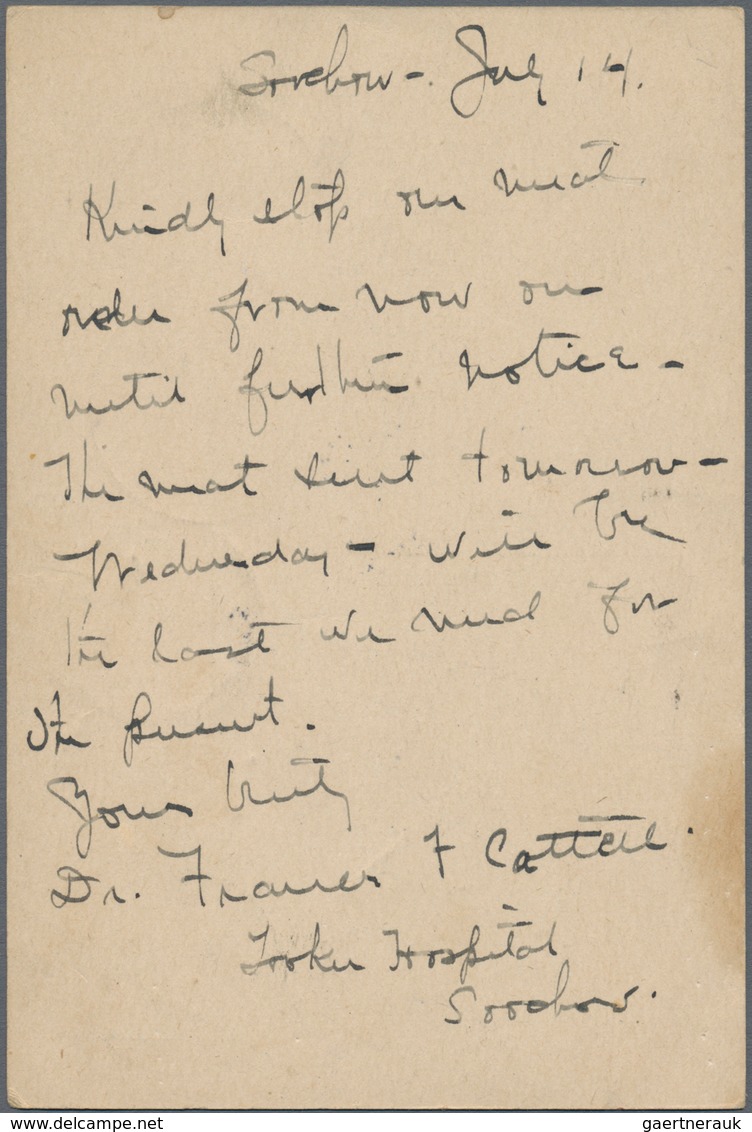 Soochow - July 14.
Kindly stop our meat
order from now on
until further notice -
The meat sent tomorrow -
Wednesday - will be
the last we need for
the present.
Yours truly
Dr. Frances F Cattell.
Tooker Hospital
Soochow.
gaertnerauk